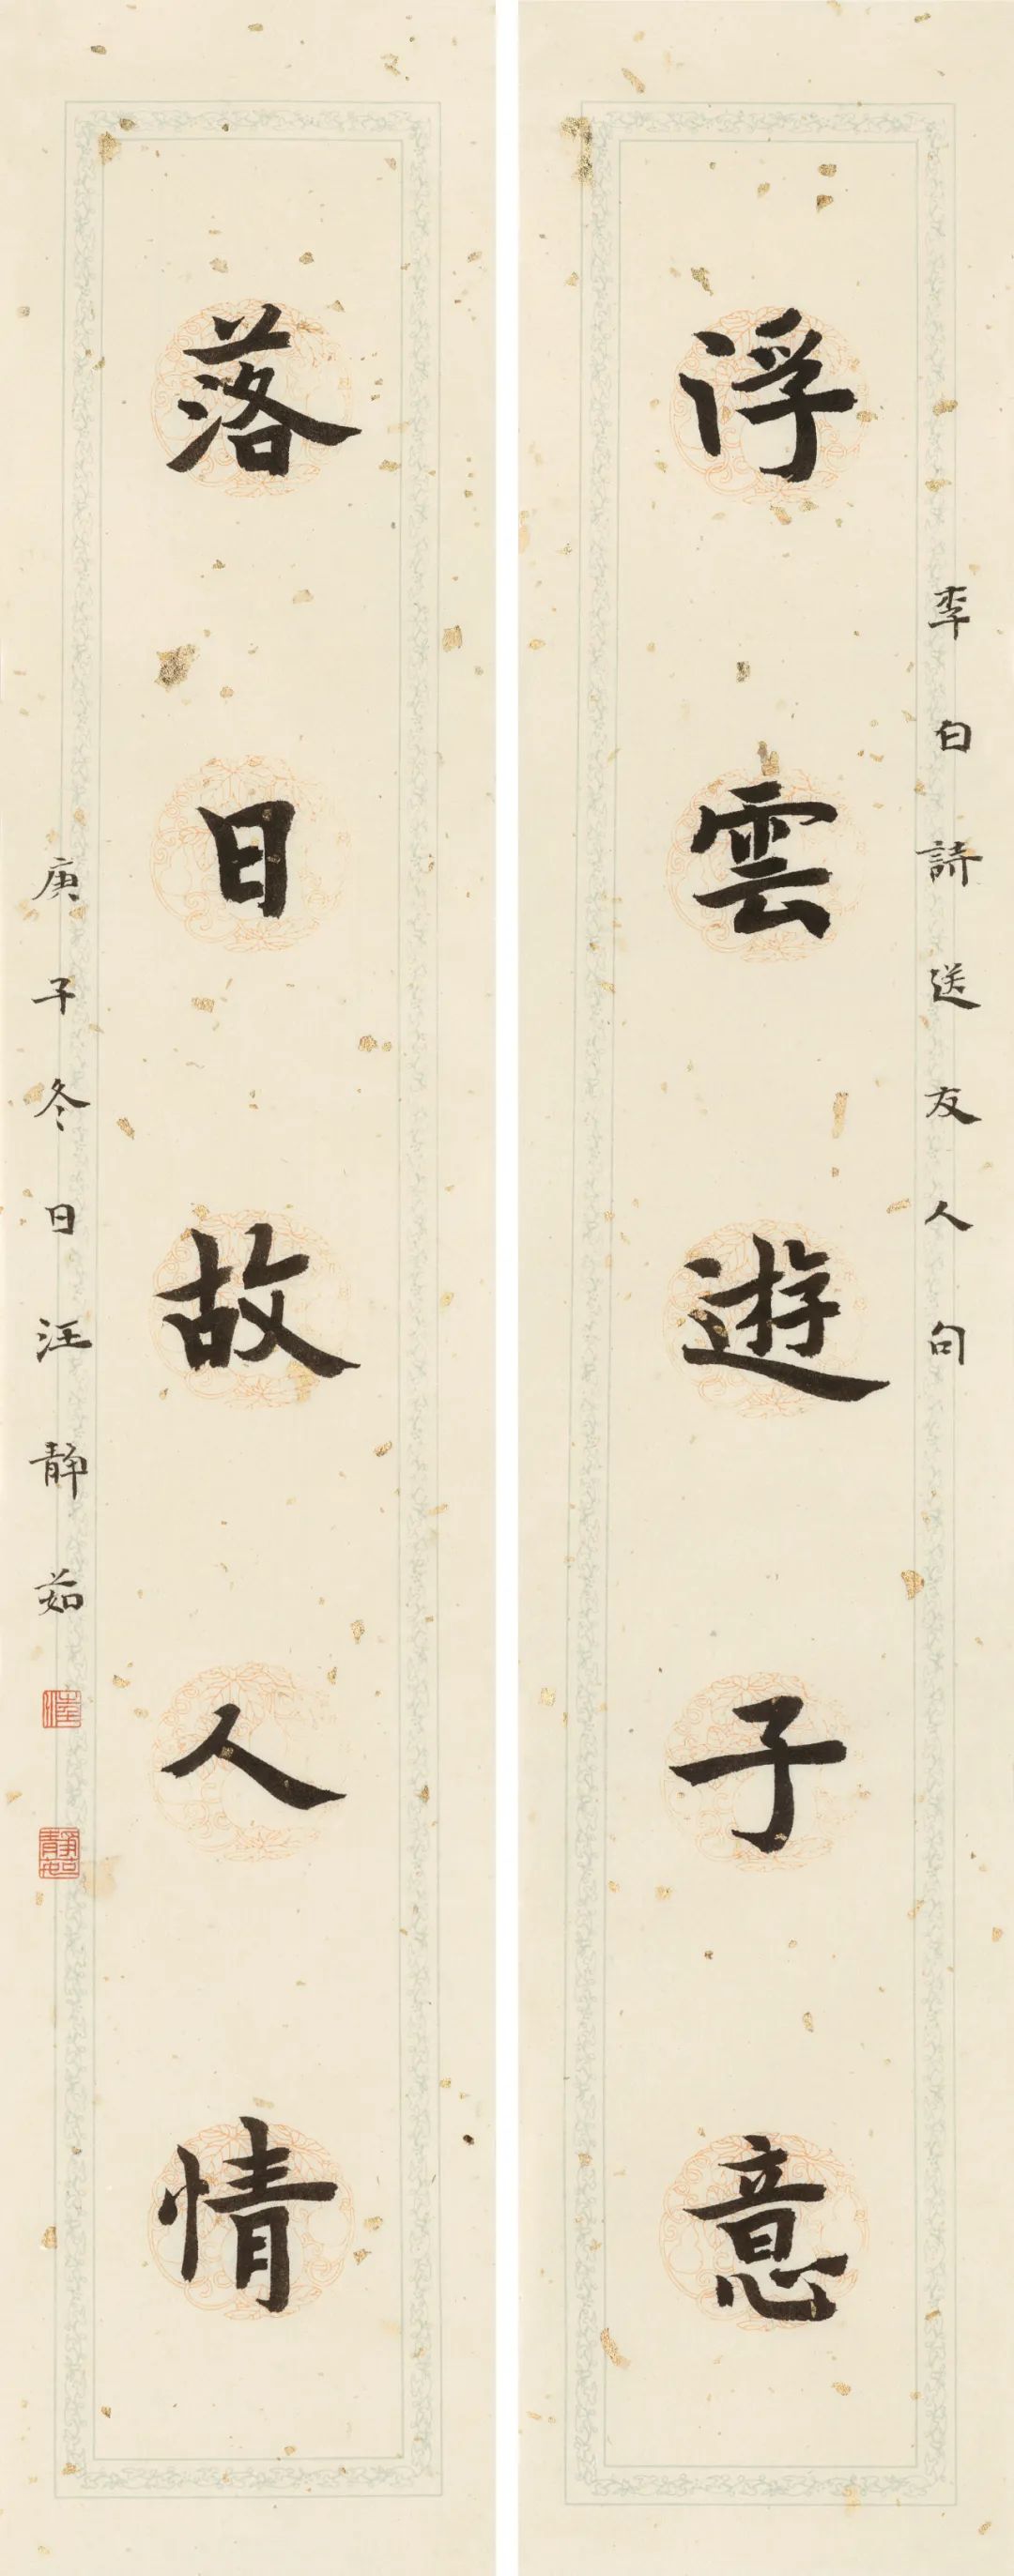 李白詩送友人句
浮雲遊子意
落日故人情
庚子冬日汪静茹
汪
靜茹